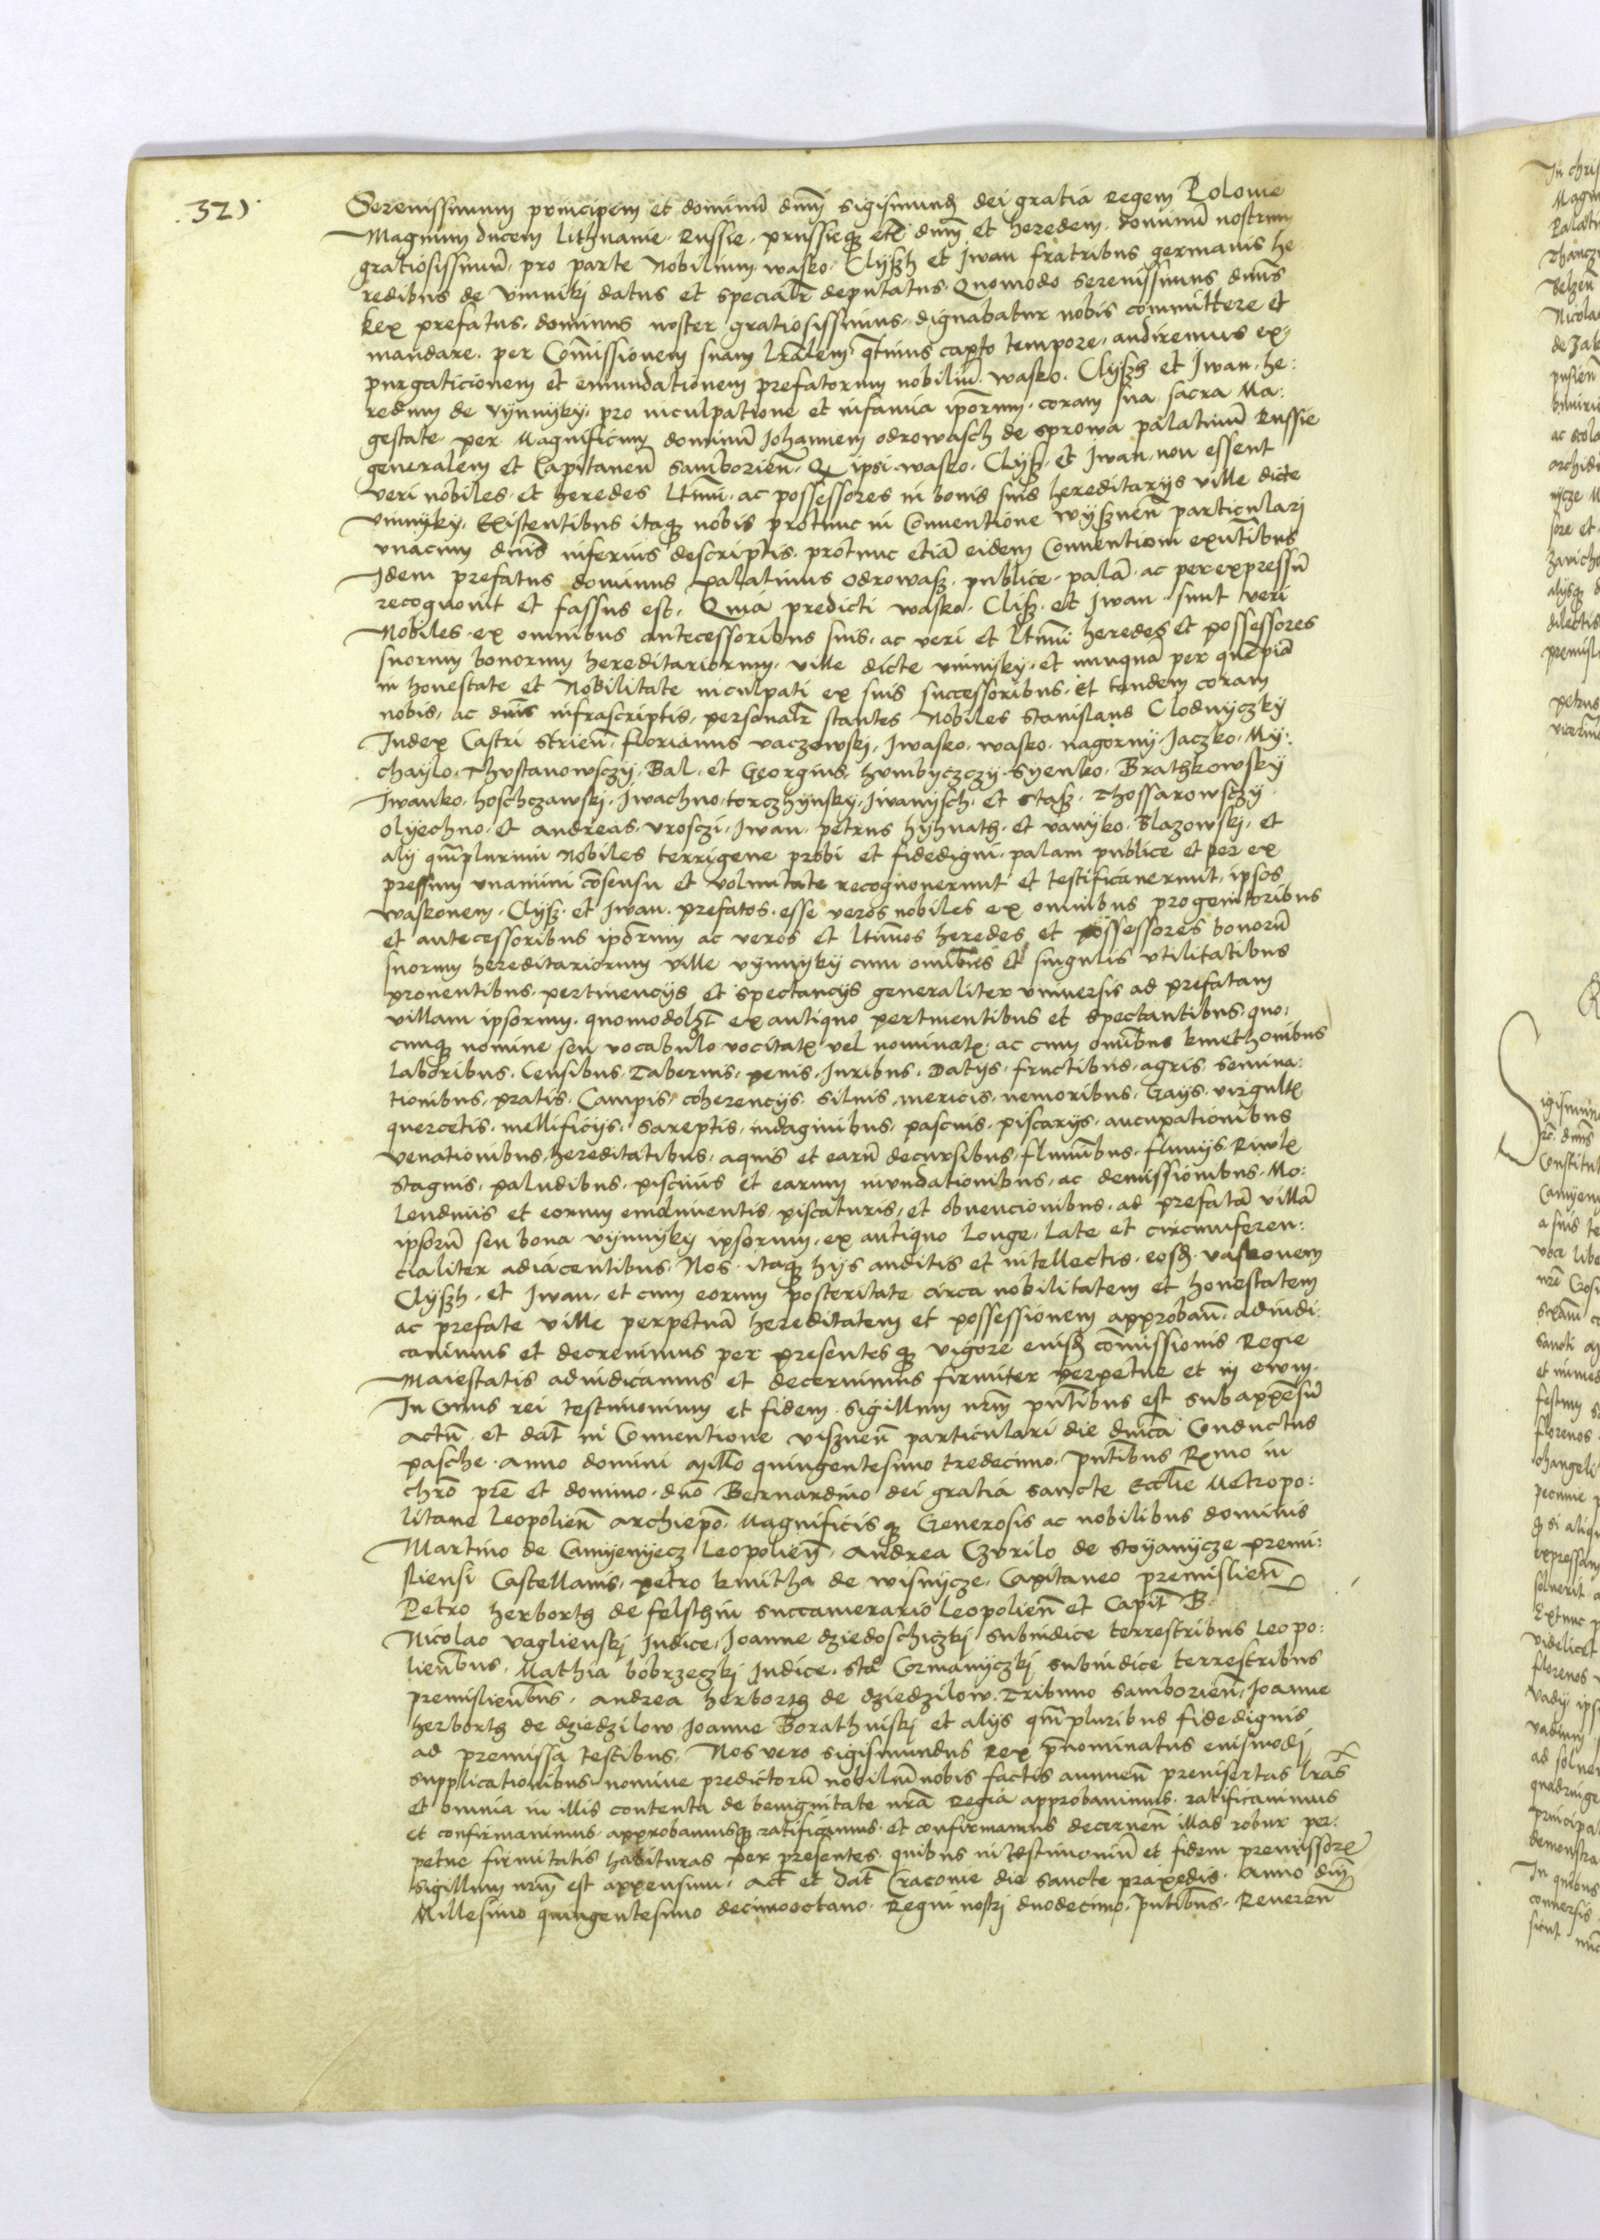 321
Serenissimum principem et dominũ dnm̃ sigismundũ dei gratia regem Polonie
Magnum ducem Lithuanie Russie prussieqȝ etc̃ dnm̃ et heredem dominũ nostrum
gratiosissimũ pro parte Nobilium wasko Clyszh et Jwan fratribus germanis he
redibus de vinniki datus et specialr̃ deputatus Quomodo serenissimus dnũs
Rex prefatus dominus noster gratiosissimus dignabatur nobis committere et
mandare per Com̃issionem suam lr̃alem qt̃inus capto tempore audiremus ex=
purgaticionem et emundationem prefatorum nobiliũ wasko Clyszh et Jwan he:
redum de vynnyky pro inculpatione et infamia ipõrum coram sua sacra Ma:
gestate per Magnificum dominũ Johannem odrowasch de sprowa palatinũ Russie
generalem et Capitaneũ samborieñ Qȝ ipsi wasko Clysz et Jwan non essent
veri nobiles et heredes lt̃imi ac possessores in bonis suis hereditarys ville dicte
vinnyky Existentibus itaqȝ nobis protunc in Conventione wysznen̄ particulari
vnacum dnĩs inferius descriptis protunc etiã eidem Conventioni exñtibus
Idem prefatus dominus palatinus odrowasz publice palã ac per expressũ
recognovit et fassus est Quia predicti wasko Clisz et Jwan sunt veri
Nobiles ex omnibus antecessoribus suis ac veri et lt̃imi heredes et possessores
suorum bonorum hereditariorum ville dicte vinnyky et nunquã per quẽpiã
in honestate et Nobilitate inculpati ex suis successoribus et tandem coram
nobis ac dnĩs infrascriptis personalr̃ stantes Nobiles stanislaus Clodnyczky
Iudex Castri strieñ florianus vaczowskj Jwasko wasko nagorny Jaczko My:
chaylo Thvstanowsczy Bal et Georgius humbyczczy Syenko Brathkowsky
Jwanko hoschczawskj Jwachno torczhynsky Jwanysch et stasz Thossarowsczy
olyechno et andreas vrosczi Jwan petrus hyhnath et vanyko Blazowskj et
aly qm̃plurimi Nobiles terrigene probi et fidedigni palam publice et per ex
pressum vnanimi cõsensu et voluntate recognoverunt et testificaverunt ipsos
waskonem Clysz et Jwan prefatos esse veros nobiles ex omnibus progenitoribus
et antecessoribus ipõrum ac veros et lt̃imos heredes et possessores bonorũ
suorum hereditariorum ville vynnyky cum omñibus et singulis vtilitatibus
proventibus pertinencys et spectancys generaliter vniversis ad prefatam
villam ipsorum quomodolȝt ex antiquo pertinentibus et spectantibus quo:
cunqȝ nomine seu vocabulo vocitatꝭ vel nominatꝭ ac cum omñibus kmethonibus
Laboribus Censibus Tabernis penis Iuribus Datys fructibus agris semina:
tionibus pratis Campis coherencys silvis mericis nemoribus Gays virgultꝭ
quercetis mellificys sareptis indaginibus pascuis piscarys aucupationibus
venationibus hereditatibus aquis et earũ decursibus flumĩbus fluvys Rivulꝭ
stagnis paludibus piscinis et earum inundationibus ac demissionibus Mo:
lendinis et eorum emolumentis piscaturis et obvencionibus ad prefatã villã
ipsorũ seu bona vynnyky ipsorum ex antiquo Longe Late et circumferen:
cialiter adiacentibus Nos itaqȝ hys auditis et intellectis eosd̃ vaskonem
Clyszh et Jwan et cum eorum posteritate circa nobilitatem et honestatem
ac prefate ville perpetuã hereditatem et possessionem approbavĩ adiudi:
cavimus et decrevimus per presentes qȝ vigore eiusd̃ com̃issionis Regie
Maiestatis adiudicamus et decernimus firmiter perpetue et in evum
In Cuius rei testimonium et fidem sigillum nrm̃ pñtibus est subappẽsũ
Actũ et dat̃ in Conventione viszneñ particulari die dnĩca Conductus
pasche anno domini millo quingentesimo tredecimo Pñtibus Rxmo in
chrõ prẽ et domino dnõ Bernardino dei gratia sancte Ecclie Metropo:
litane Leopolieñ archiepõ Magnificis qȝ Generosis ac nobilibus dominis
Martino de Camyenyecz Leopolieñ Andrea Czvrilo de Stoyanycze premi:
sliensi Castellanis petro kmitha de wisnycze Capitaneo premislieñ
Petro herborth de felsthin succamerario Leopolieñ et Capit̃ B
Nicolao vaglienskj Iudice Joanne dziedoschiczkj subiudice terrestribus Leopo:
lieñbus Mathia bobrzeczkj Iudice sta Cormanyczkj subiudice terrestribus
premislieñbus Andrea herborth de dziedzilow Tribuno samborieñ Joanne
herborth de dziedzilow Joanne Borathnskj et alys qm̃pluribus fidedignis
ad premissa testibus Nos vero sigismundus Rex p̃nominatus eiusmodj
supplicationibus nomine predictorũ nobiliũ nobis factis annueñ preinsertas lrãs
et omnia in illis contenta de benignitate nrã Regia approbavimus ratificavimus
et confirmavimus approbamusqȝ ratificamus et confirmamus decerneñ illas robur per:
petue firmitatis habituras per presentes quibus in testimoniũ et fidem premissorꝭ
sigillum nrm̃ est appensum Act̃ et Dat̃ Cracovie die sancte praxedis Anno dnĩ
Millesimo quingentesimo decimooctavo Regni nostrj duodecimo Pñtibus Revereñ